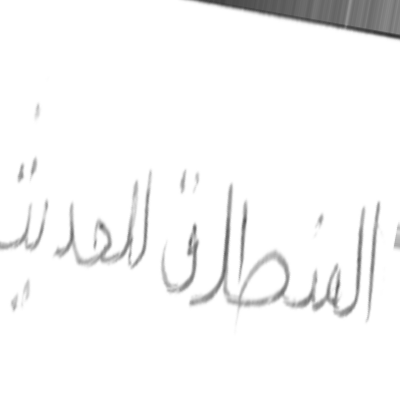 المنطلق للحديث